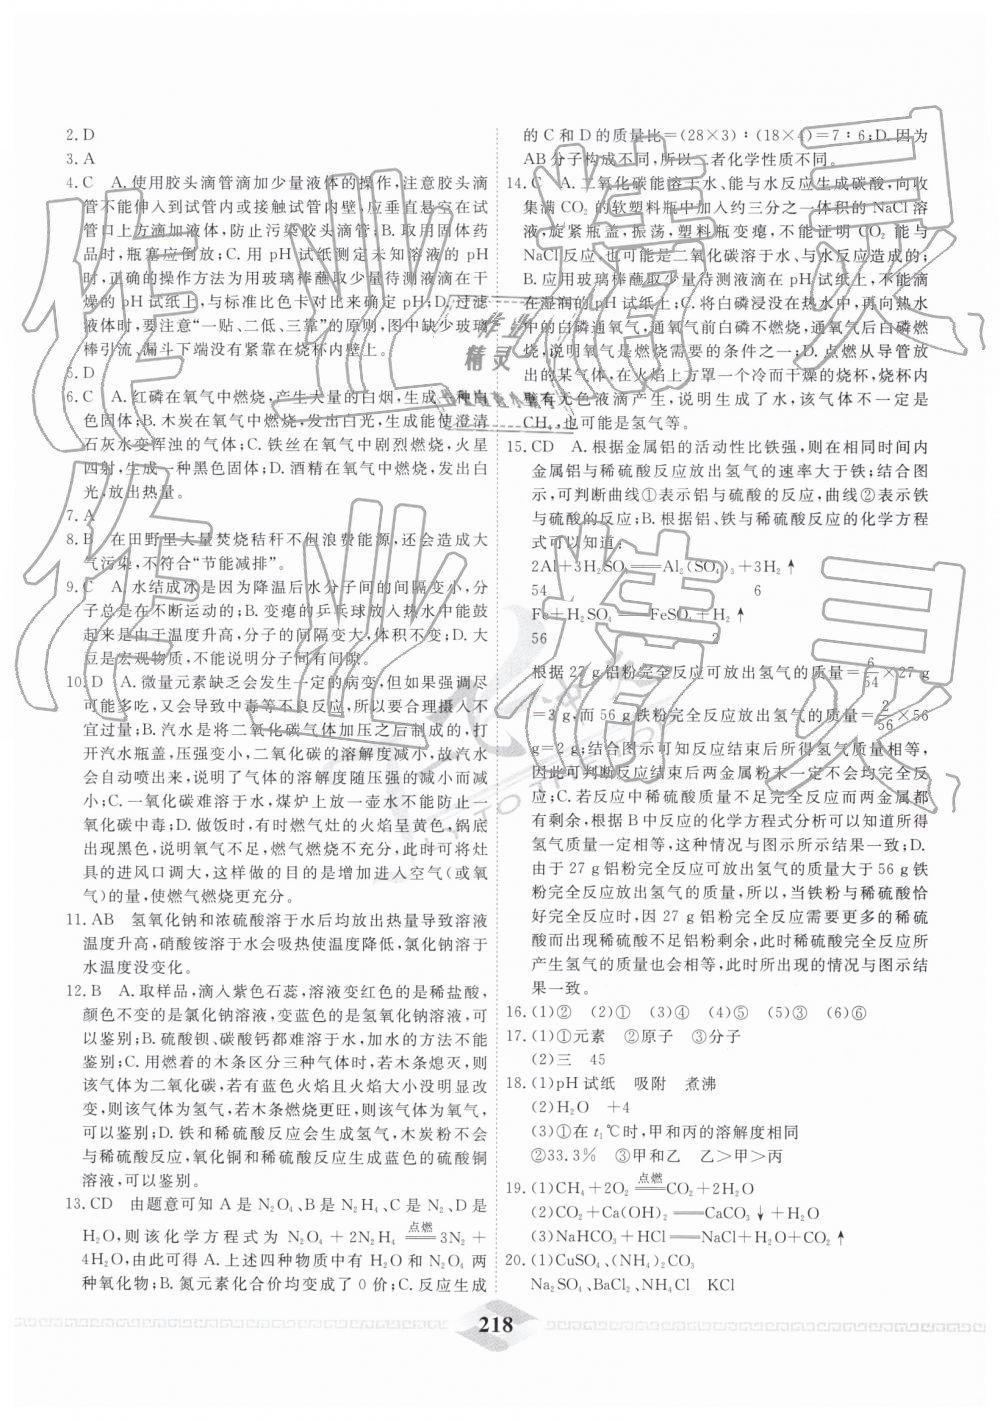 2. D
3. A
4. C　A. 使用胶头滴管滴加少量液体的操作,注意胶头滴
管不能伸入到试管内或接触试管内壁,应垂直悬空在试
管口上方滴加液体,防止污染胶头滴管;B. 取用固体药
品时,瓶塞应倒放;C. 用 pH 试纸测定未知溶液的 pH
时,正确的操作方法为用玻璃棒蘸取少量待测液滴在干
燥的 pH 试纸上,与标准比色卡对比来确定 pH;D. 过滤
液体时,要注意“一贴、二低、三靠”的原则,图中缺少玻璃
棒引流、漏斗下端没有紧靠在烧杯内壁。
5. D
6. C　A. 红磷在氧气中燃烧,产生大量的白烟,生成一种白
色固体;B. 木炭在氧气中燃烧,发出白光,生成能使澄清
石灰水变浑浊的气体;C. 铁丝在氧气中剧烈燃烧,火星
四射,生成一种黑色固体;D. 酒精在氧气中燃烧,发出白
光,放出热量。
7. A
8. B　在田野里大量焚烧秸秆不但浪费能源,还会造成大
气污染,不符合“节能减排”。
9. C　A. 水结成冰是因为降温后水分子间的间隔变小,分
子总是在不断运动的;B. 变瘪的乒乓球放入热水中能鼓
起来是由于温度升高,分子的间隔变大,体积不变;D. 大
豆是宏观物质,不能说明分子间有间隙。
10. D　A. 微量元素缺乏会发生一定的病变,但如果强调尽
可能多吃,又会导致中毒等不良反应,所以要合理摄入不
宜过量;B. 汽水是将二氧化碳气体加压之后制成的,打
开汽水瓶盖,压强变小,二氧化碳的溶解度减小,故汽水
会自动喷出来,说明了气体的溶解度随压强的减小而减
小;C. 一氧化碳难溶于水,煤炉上放一壶水不能防止一
氧化碳中毒;D. 做饭时,有时燃气灶的火焰呈黄色,锅底
出现黑色,说明氧气不足,燃气燃烧不充分,此时可将灶
具的进风口调大,这样做的目的是增加进入空气(或氧
气)的量,使燃气燃烧更充分。
11. AB　氢氧化钠和浓硫酸溶于水后均放出热量导致溶液
温度升高,硝酸铵溶于水会吸热使温度降低,氯化钠溶于
水温度没变化。
12. B　A. 取样品,滴入紫色石蕊,溶液变红色的是稀盐酸,
颜色不变的是氯化钠溶液,变蓝色的是氢氧化钠溶液,可
以鉴别;B. 硫酸钡、碳酸钙都难溶于水,加水的方法不能
鉴别;C. 用燃着的木条区分三种气体时,若木条熄灭,则
该气体为二氧化碳,若有蓝色火焰且火焰大小没明显改
变,则该气体为氢气,若木条燃烧更旺,则该气体为氧气,
可以鉴别;D. 铁和稀硫酸反应会生成氢气,木炭粉不会
与稀硫酸反应,氧化铜和稀硫酸反应生成蓝色的硫酸铜
溶液,可以鉴别。
13. CD　由题意可知 A 是 N₂O₄、B 是 N₂H₄、C 是 N₂、D 是
H₂O,则该化学方程式为 N₂O₄ + 2N₂H₄ ══点燃══ 3N₂ +
4H₂O,由此可得 A. 上述四种物质中有 H₂O 和 N₂O₄ 两
种氧化物;B. 氮元素化合价均变成了 0 价;C. 反应生成
的 C 和 D 的质量比=(28×3)∶(18×4)=7∶6;D. 因为
AB 分子构成不同,所以二者化学性质不同。
14. C　A. 二氧化碳能溶于水、能与水反应生成碳酸,向收
集满 CO₂ 的软塑料瓶中加入约三分之一体积的 NaCl 溶
液,旋紧瓶盖,振荡,塑料瓶变瘪,不能证明 CO₂ 能与
NaCl 反应,也可能是二氧化碳溶于水、与水反应造成的;
B. 应用玻璃棒蘸取少量待测液滴在 pH 试纸上,不能滴
在湿润的 pH 试纸上;C. 将白磷浸没在热水中,再向热水
中的白磷通氧气,通氧气前白磷不燃烧,通氧气后白磷燃
烧,说明氧气是燃烧需要的条件之一;D. 点燃从导管放
出的某气体,在火焰上方罩一个冷而干燥的烧杯,烧杯内
壁有无色液滴产生,说明生成了水,该气体不一定是
CH₄,也可能是氢气等。
15. CD　A. 根据金属铝的活动性比铁强,则在相同时间内
金属铝与稀硫酸反应放出氢气的速率大于铁;结合图
示,可判断曲线①表示铝与硫酸的反应,曲线②表示铁
与硫酸的反应;B. 根据铝、铁与稀硫酸反应的化学方程
式可以知道:
2Al+3H₂SO₄══Al₂(SO₄)₃+3H₂↑
54　6
Fe+H₂SO₄══FeSO₄+H₂↑
56　2
根据 27 g 铝粉完全反应可放出氢气的质量=6/54×27 g
=3 g,而 56 g 铁粉完全反应放出氢气的质量=2/56×56
g=2 g;结合图示可知反应结束后所得氢气质量相等,
因此可判断反应结束后两金属粉末一定不会均完全反
应;C. 若反应中稀硫酸质量不足完全反应而两金属都
有剩余,根据 B 中反应的化学方程式分析可以知道所得
氢气质量一定相等,这种情况与图示所示结果一致;D.
由于 27 g 铝粉完全反应可放出氢气的质量大于 56 g 铁
粉完全反应放出氢气的质量,所以,当铁粉与稀硫酸恰
好完全反应时,因 27 g 铝粉完全反应需要更多的稀硫
酸而出现稀硫酸不足铝粉剩余,此时稀硫酸完全反应所
产生氢气的质量也会相等,此时所出现的情况与图示结
果一致。
16. (1)②　(2)①　(3)④　(4)⑤　(5)③　(6)⑥
17. (1)①元素　②原子　③分子
(2)三　45
18. (1)pH 试纸　吸附　煮沸
(2)H₂O　+4
(3)①在 t₁℃时,甲和丙的溶解度相同
②33.3%　③甲和乙　乙>甲>丙
19. (1)CH₄+2O₂ ══点燃══ CO₂+2H₂O
(2)CO₂+Ca(OH)₂══CaCO₃↓+H₂O
(3)NaHCO₃+HCl══NaCl+H₂O+CO₂↑
20. (1)CuSO₄、(NH₄)₂CO₃
Na₂SO₄、BaCl₂、NH₄Cl　KCl
218
作业精灵
作业精灵
作业
精灵